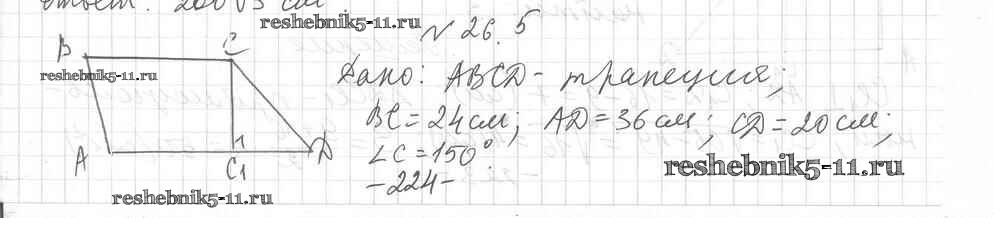 Ответ: 200√3 см
reshebnik5-11.ru
№ 26.5
B C
reshebnik5-11.ru
Дано: ABCD - трапеция;
BC = 24 см; AD = 36 см; CD = 20 см;
∠C = 150°.
A C₁ D
reshebnik5-11.ru
-224-
reshebnik5-11.ru